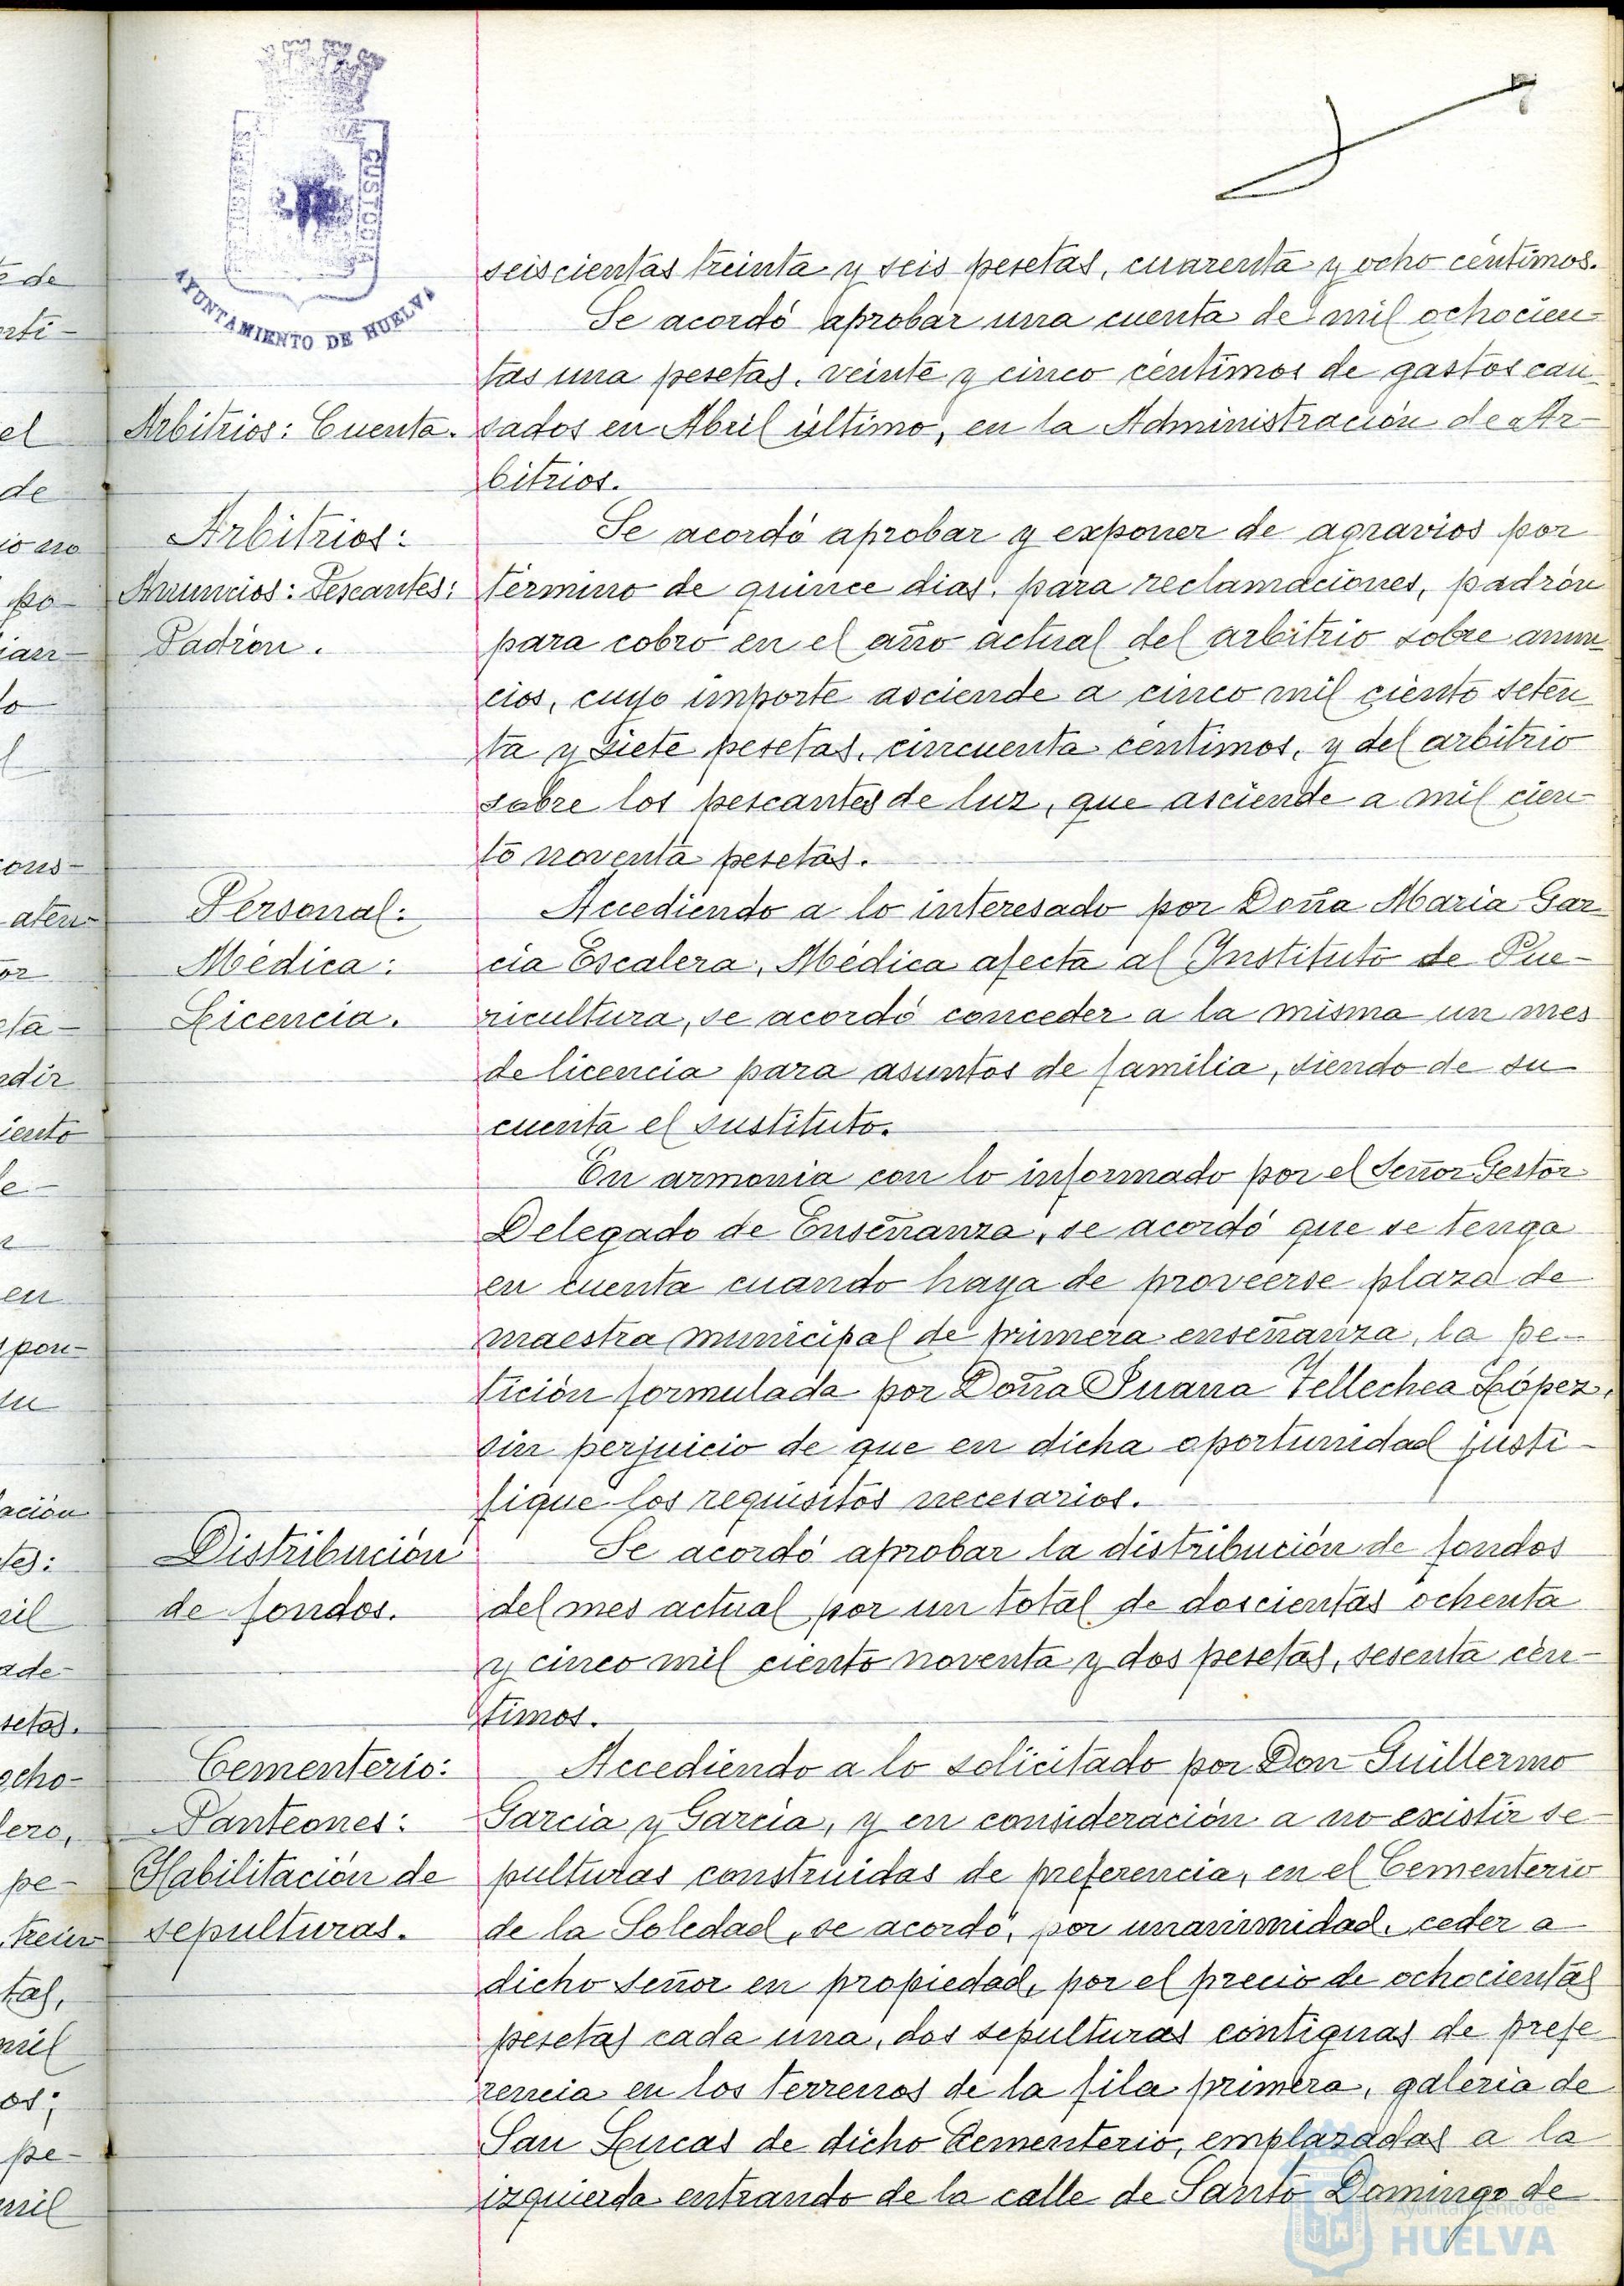 CUSTODIA
AYUNTAMIENTO DE HUELVA
seiscientas treinta y seis pesetas, cuarenta y ocho céntimos.
Se acordó aprobar una cuenta de mil ochocien-
tas una pesetas, veinte y cinco céntimos de gastos cau-
Arbitrios: Cuenta.
sados en Abril último, en la Administración de Ar-
bitrios.
Arbitrios:
Anuncios: Pescantes:
Padrón.
Se acordó aprobar y exponer de agravios por
término de quince dias, para reclamaciones, padrón
para cobro en el año actual del arbitrio sobre anun-
cios, cuyo importe asciende a cinco mil ciento seten
ta y siete pesetas, cincuenta céntimos, y del arbitrio
sobre los pescantes de luz, que asciende a mil cien-
to noventa pesetas.
Personal:
Médica:
Licencia.
Accediendo a lo interesado por Doña Maria Gar
cia Escalera, Médica afecta al Instituto de Pue-
ricultura, se acordó conceder a la misma un mes
de licencia para asuntos de familia, siendo de su
cuenta el sustituto.
En armonia con lo informado por el Señor Gestor
Delegado de Enseñanza, se acordó que se tenga
en cuenta cuando haya de proveerse plaza de
maestra municipal de primera enseñanza, la pe-
tición formulada por Doña Juana Tellechea López,
sin perjuicio de que en dicha oportunidad justi-
fique los requisitos necesarios.
Distribución
de fondos.
Se acordó aprobar la distribución de fondos
del mes actual por un total de doscientas ochenta
y cinco mil ciento noventa y dos pesetas, sesenta cén-
timos.
Cementerio:
Panteones:
Habilitación de
sepulturas.
Accediendo a lo solicitado por Don Guillermo
Garcia y Garcia, y en consideración a no existir se-
pulturas construidas de preferencia, en el Cementerio
de la Soledad, se acordó, por unanimidad, ceder a
dicho señor en propiedad, por el precio de ochocientas
pesetas cada una, dos sepulturas contiguas de prefe
rencia en los terrenos de la fila primera, galeria de
San Lucas de dicho Cementerio, emplazadas a la
izquierda entrando de la calle de Santo Domingo de
Ayuntamiento de
HUELVA